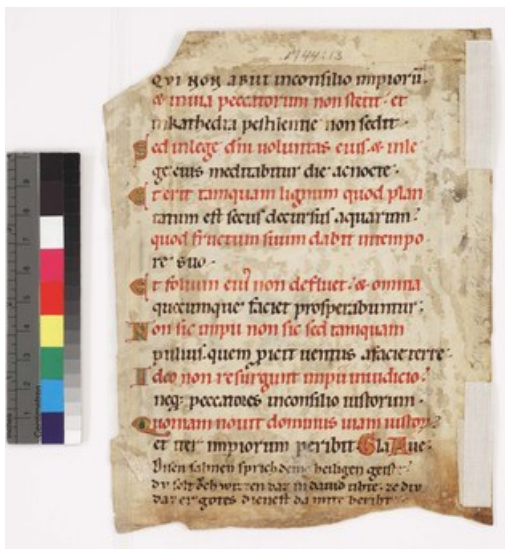 M44:13
QVI NON ABIIT inconsilio impiorũ.
& inuia peccatorum non stetit· et
inkathedra pestilentie non sedit
Sed inlege dñi uoluntas eius· & inle
ge eius meditabitur die acnocte·
Et erit tamquam lignum quod plan
tatum est secus decursus aquarum·
quod fructum suum dabit intempo
re suo·
Et folium eiꝰ non defluet· & omnia
quecumque faciet prosperabuntur·
Non sic impii non sic sed tamquam
puluis quem picit uentus afacie terre·
Ideo non resurgunt impii iniudicio·
neq; peccatores inconsilio iustorum·
Quoniam nouit dominus uiam iustoꝝ·
et iter impiorum peribit· Gl̃a Aue·
Disen salmen sprich deme heiligen geiste·
dv solt och wizzen daz in dauid
daz er gotes dienest da mite